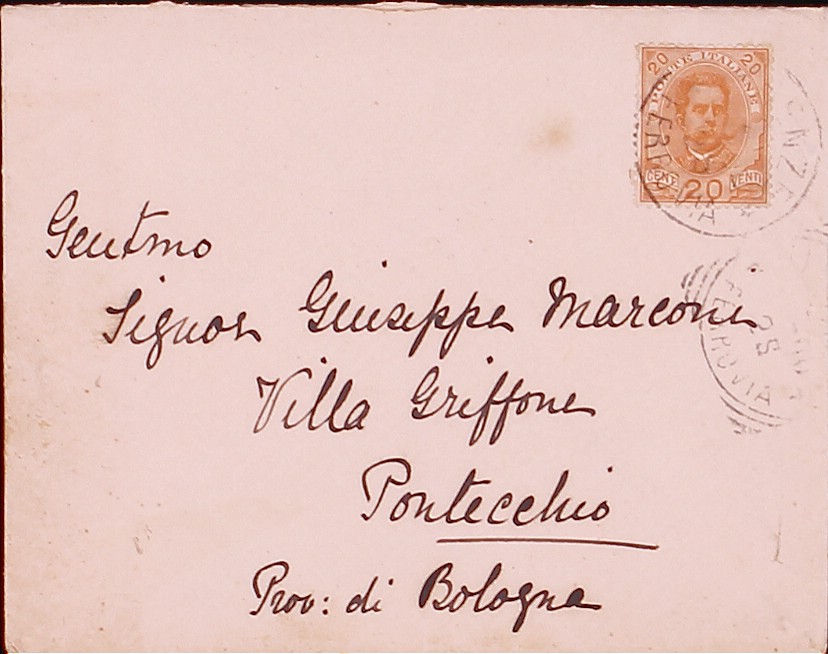 20 POSTE ITALIANE 20
CENT 20 VENTI
FERROVIA
FERROVIA
Gentmo
Signor Giuseppe Marconi
Villa Griffone
Pontecchio
Prov: di Bologna